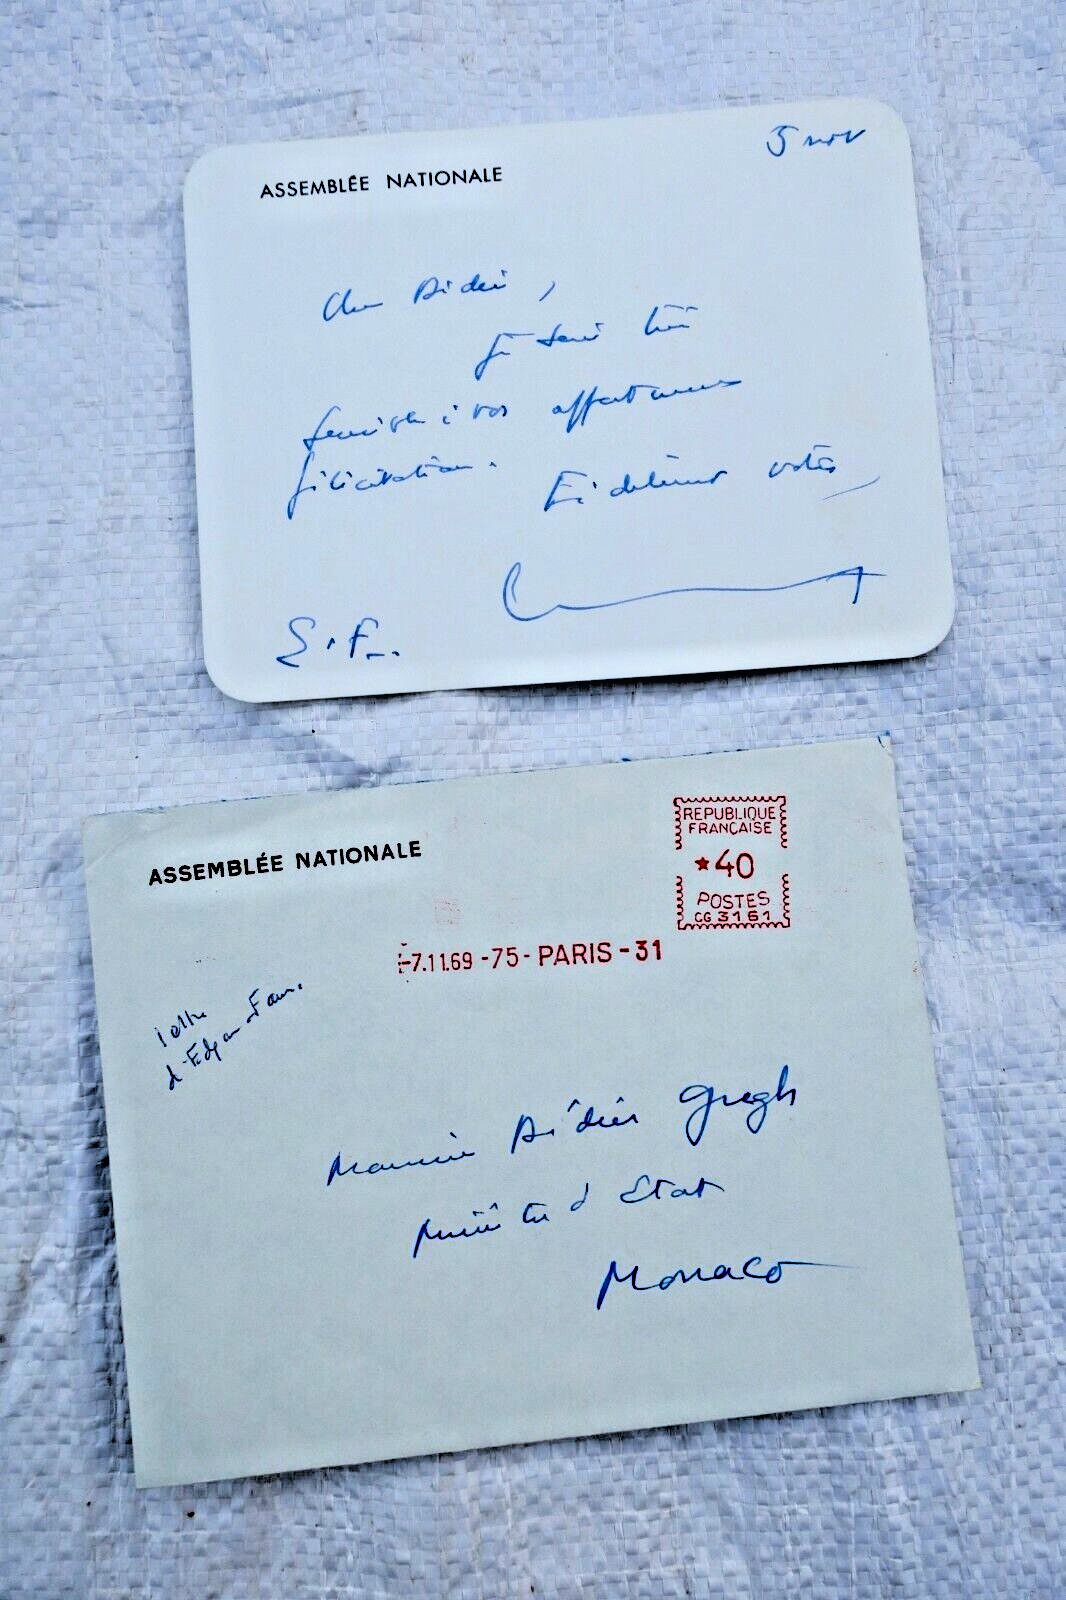 ASSEMBLÉE NATIONALE
5 nov
Cher Didier,
Je suis très
sensible à vos affectueuses
félicitations.
Fidèlement votre
E.F.
ASSEMBLÉE NATIONALE
REPUBLIQUE
FRANÇAISE
★40
POSTES
CG 3161
-7.11.69 -75- PARIS -31
lettre
d'Edgar Faure
Monsieur Didier Gregh
Ministre d'Etat
Monaco